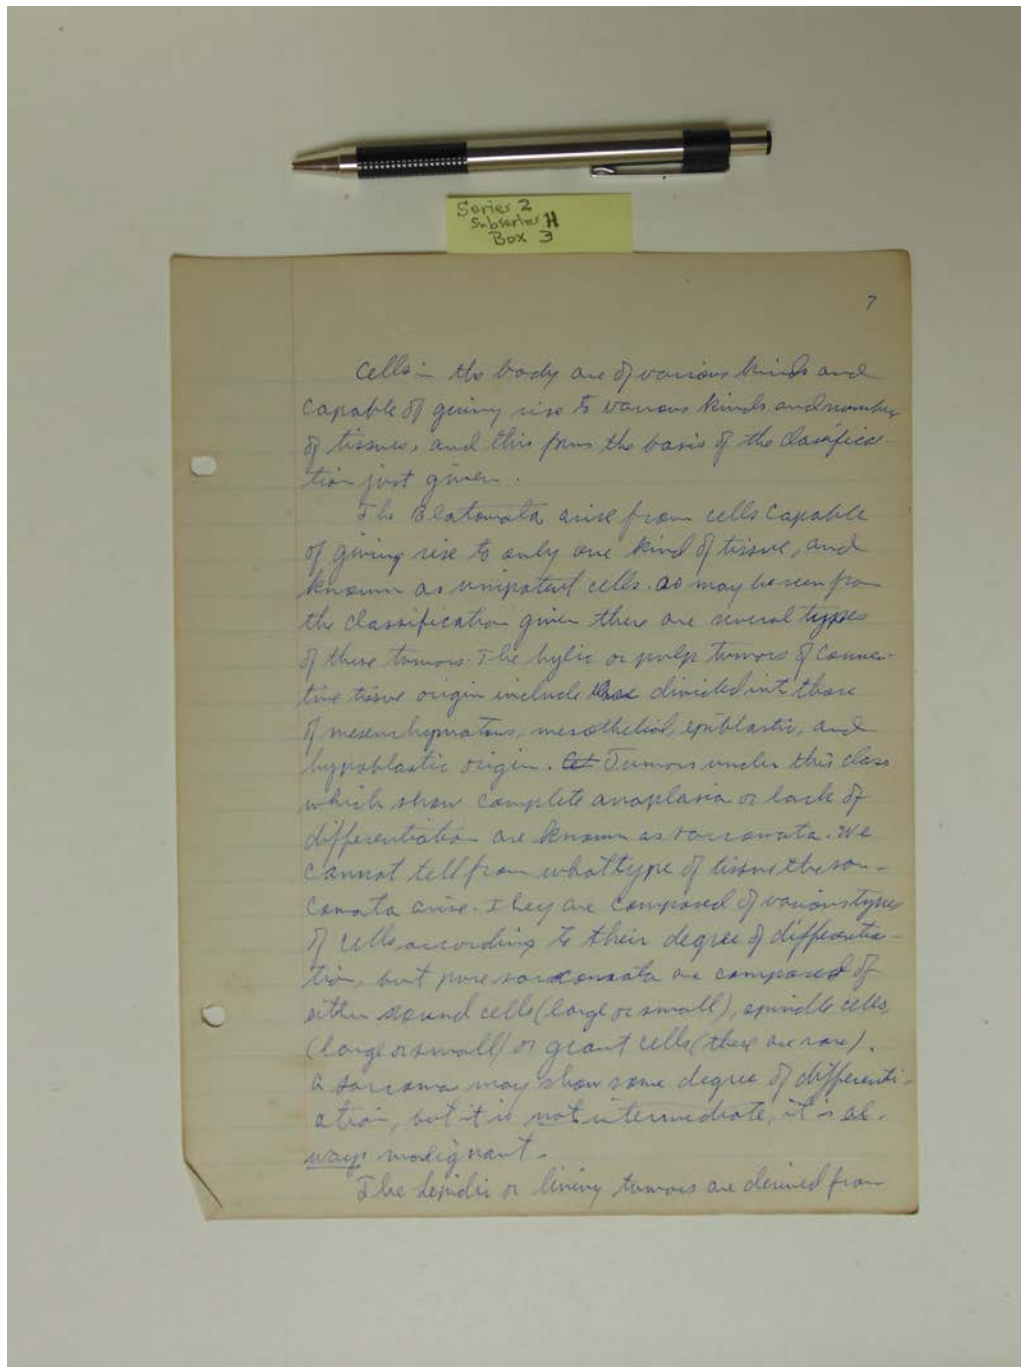 Series 2
Subseries H
Box 3
7
Cells in the body are of various kinds and
capable of giving rise to various kinds and number
of tissues, and this forms the basis of the classifica-
tion just given.
The Blatomata arise from cells capable
of giving rise to only one kind of tissue, and
known as unipotent cells. As may be seen from
the classification given there are several types
of these tumors. The hylic or pulp tumors of connec-
tive tissue origin include divided into those
of mesenchymatous, mesothelial, epiblastic, and
hypoblastic origin. Tumors under this class
which show complete anaplasia or lack of
differentiation are known as sarcomata. We
cannot tell from what type of tissue the sar-
comata arise. They are composed of various types
of cells according to their degree of differentia-
tion, but pure sarcomata are composed of
either round cells (large or small), spindle cells,
(large or small) or giant cells (these are rare).
A sarcoma may show some degree of differenti-
ation, but it is not intermediate, it is al-
ways malignant.
The lepidic or lining tumors are derived from